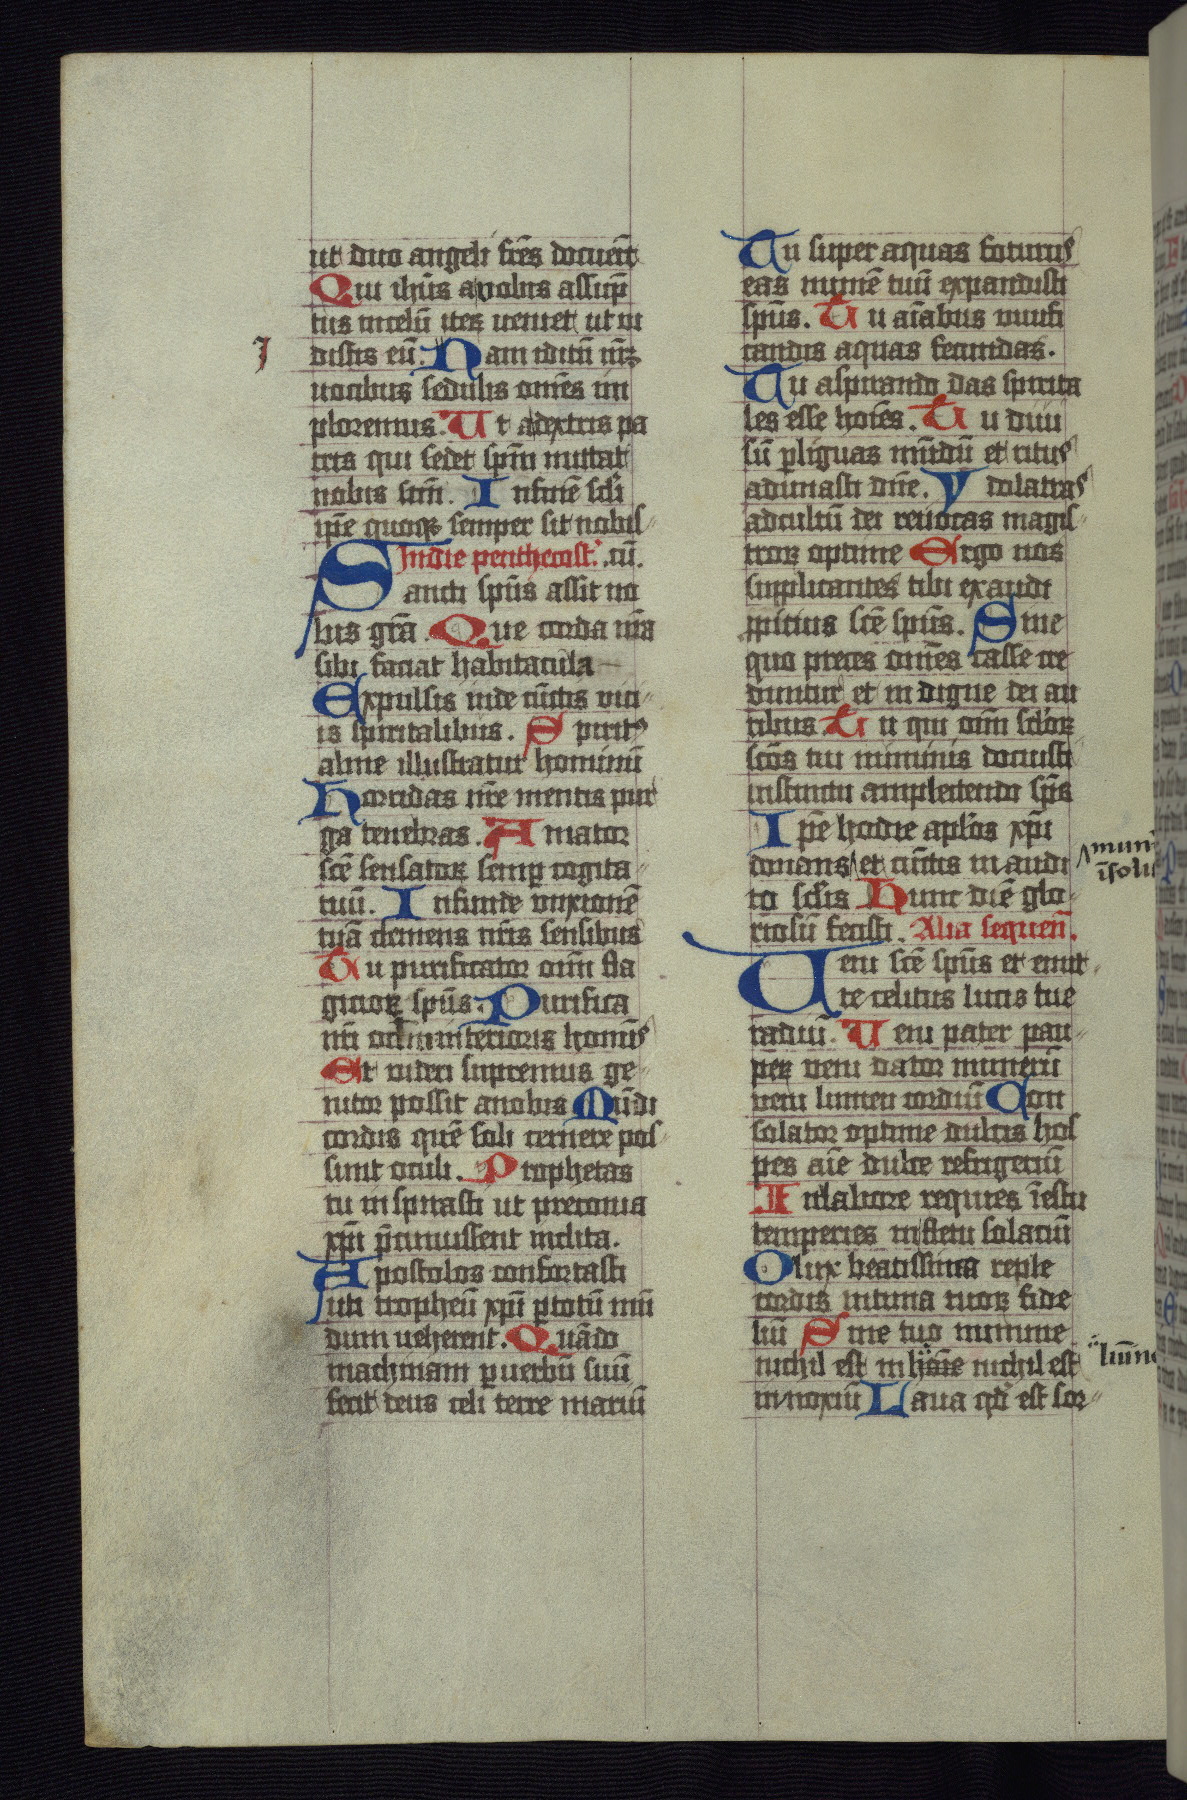 ut duo angeli fr̄es docuer̄t
Qui ih̄us a vobis assūp
tus in celū iteꝝ veniet ut vi
distis eū. Nam iditū im̄ꝫ
J
vocibus sedulis om̄es im
ploremus. Ut a dextris pa
tris qui sedet sp̄m mittat
nobis sc̄m. In fine sc̄li
ip̄e quoqꝫ semper sit nobis
In die penthecost. cū.
Sancti sp̄us assit no
bis gr̄a. Que corda n̄ra
sibi faciat habitacula
Expulsis inde cūctis vici
is spiritalibus. Spiritꝰ
alme illustratur hominū
Horridas n̄re mentis pur
ga tenebras. Amator
sc̄e sensatoꝝ semꝑ cogita
tuū. Infunde unxionē
tuā clemens n̄ris sensibus
Tu purificator om̄i fla
gicioꝝ sp̄us. Purifica
nr̄i oclm interioris hominꝭ
Et videri supremus ge
nitor possit a nobis Mūdi
cordis quē soli cernere pos
sunt oculi. Prophetas
tu inspirasti ut preconia
xp̄i p̄cinuissent inclita.
Apostolos confortasti
uti tropheū xp̄i ꝑ totū mū
dum veherent. Quādo
machinam ꝑ verbū suū
fecit deus celi terre mariū
Tu super aquas foturus
eas numē tuū expandisti
sp̄us. Tu aīabus vivifi
candis aquas fecundas.
Tu aspirando das spirita
les esse hoīes. Tu divi
sū ꝑ liguas mūdū et ritus
adunasti dn̄e. Ydolatras
ad cultū dei revocas magis
troꝝ optime Ergo nos
supplicantes tibi exaudi
ꝓpitius sc̄e sp̄us. Sine
quo preces om̄es casse cre
duntur et indigne dei au
ribus. Tu qui om̄i sc̄loꝝ
sc̄os tui numinis docuisti
instinctu amplectendi sp̄us
Ip̄e hodie apl̄os xp̄i
donans et cūctis inaudi
mun̄
īsoli
to sc̄lis Hunc diē glo
riosū fecisti. Alia sequen̄.
Veni sc̄e sp̄us et emit
te celitus lucis tue
radiū. Veni pater pau
peꝝ veni dator munerū
veni lumen cordiū Con
solator optime dulcis hos
pes aīe dulce refrigeriū
In labore requies ī estu
temperies in fletu solaciū
O lux beatissima reple
cordis intima tuoꝝ fide
liū Sine tuo numine
nichil est in hōie nichil est
līmin
innoxiū Lava qd̄ est sor